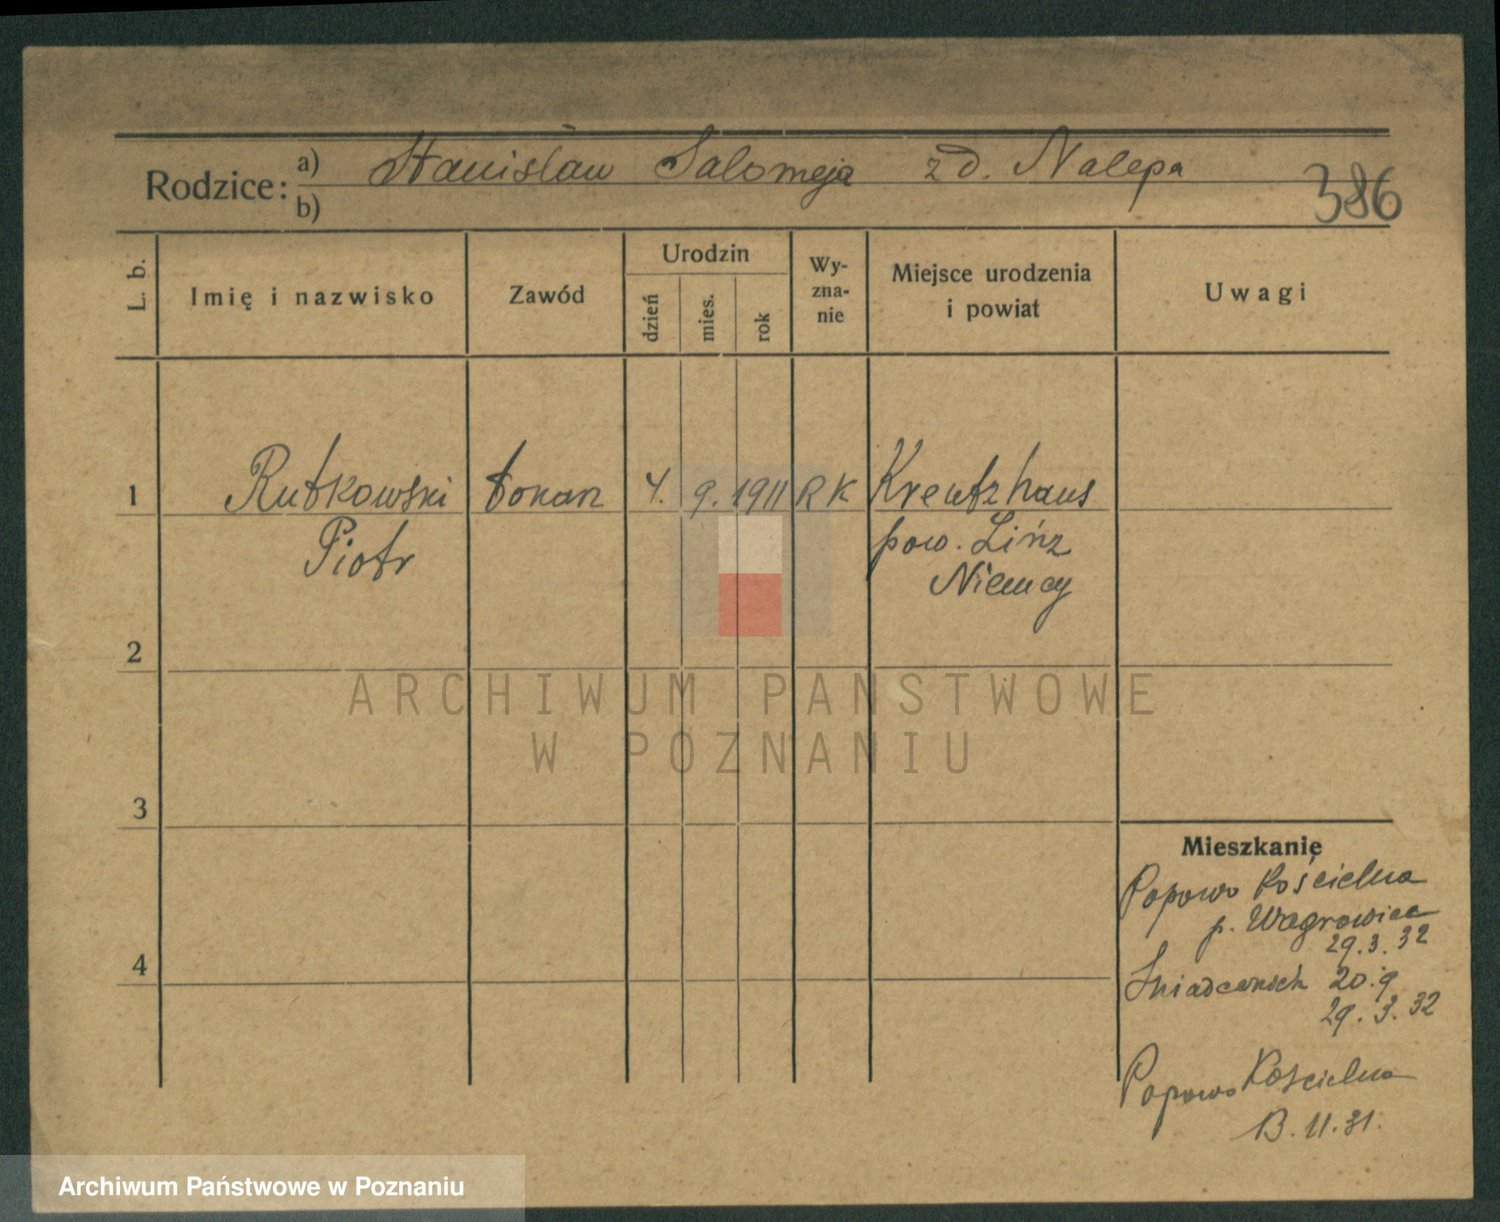 Rodzice: a) Stanisław Salomeja zd. Nalepa
b)
386
L. b.
Imię i nazwisko
Zawód
Urodzin
dzień
mies.
rok
Wy-
zna-
nie
Miejsce urodzenia
i powiat
Uwagi
1
Rutkowski tokarz 4. 9. 1911 RK Kreutzhaus
Piotr
pow. Linz
Niemcy
2
ARCHIWUM PAŃSTWOWE
W POZNANIU
3
4
Mieszkanie
Popowo Kościelna
p. Wągrowiec
29.3.32
Śniadeckich 20.9
29.3.32
Popowo Kościelna
13.11.31.
Archiwum Państwowe w Poznaniu